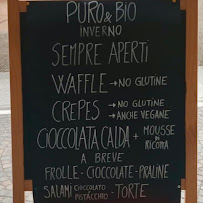 PURO & BIO
INVERNO
SEMPRE APERTI
WAFFLE → NO GLUTINE
CREPES → NO GLUTINE
→ ANCHE VEGANE
CIOCCOLATA CALDA + MOUSSE DI RICOTTA
A BREVE
FROLLE - CIOCCOLATE - PRALINE
SALAMI CIOCCOLATO PISTACCHIO - TORTE